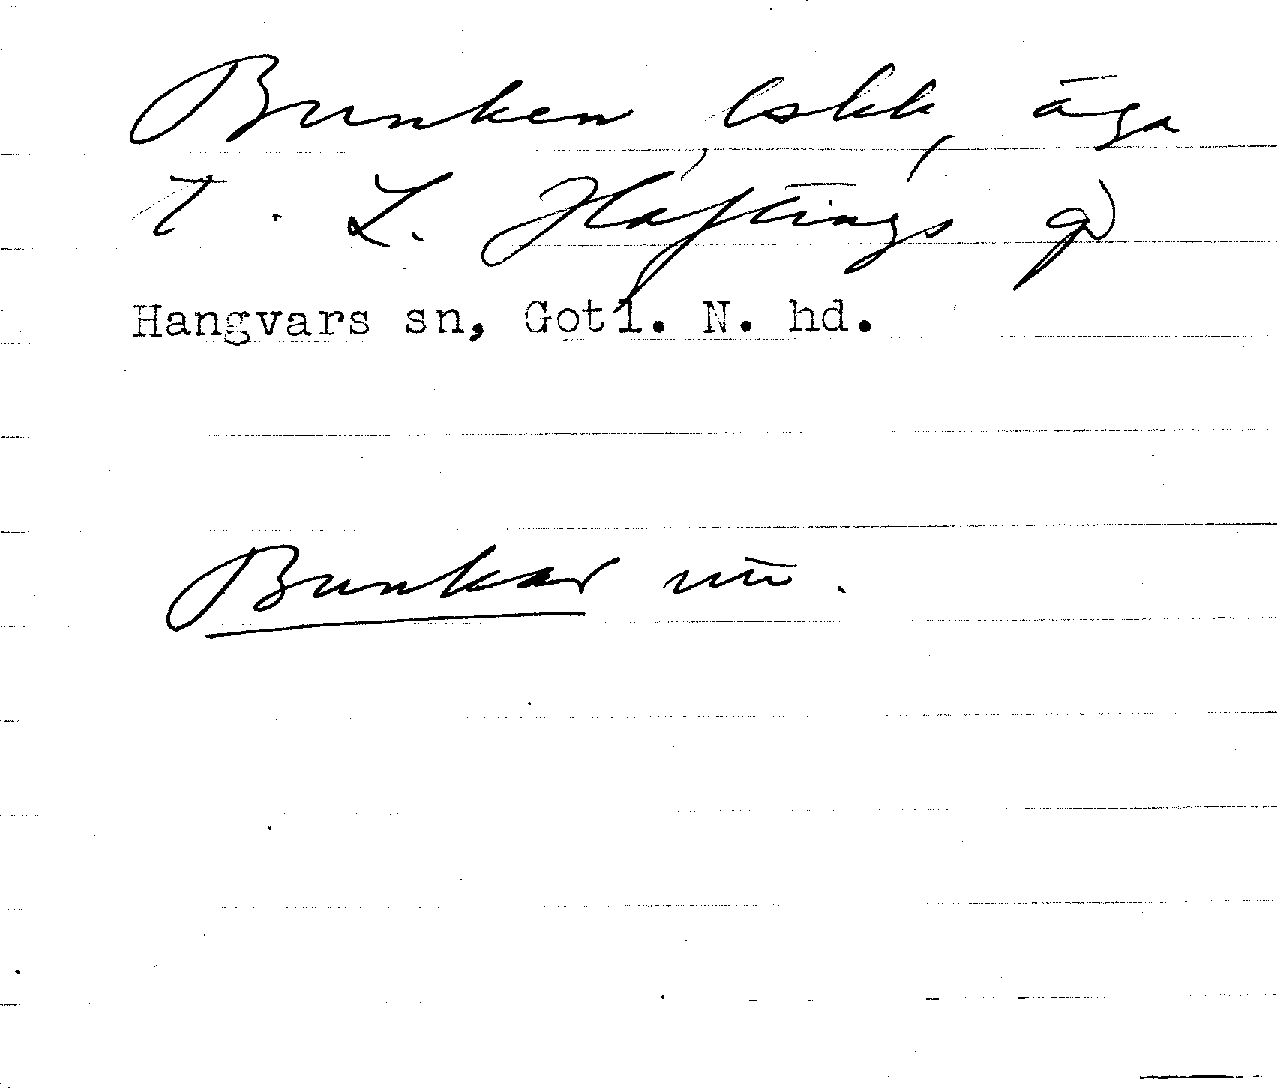 Bunken, lskh, äga
t. L. Häftings gd
Hangvars sn, Gotl. N. hd.
Bunkar